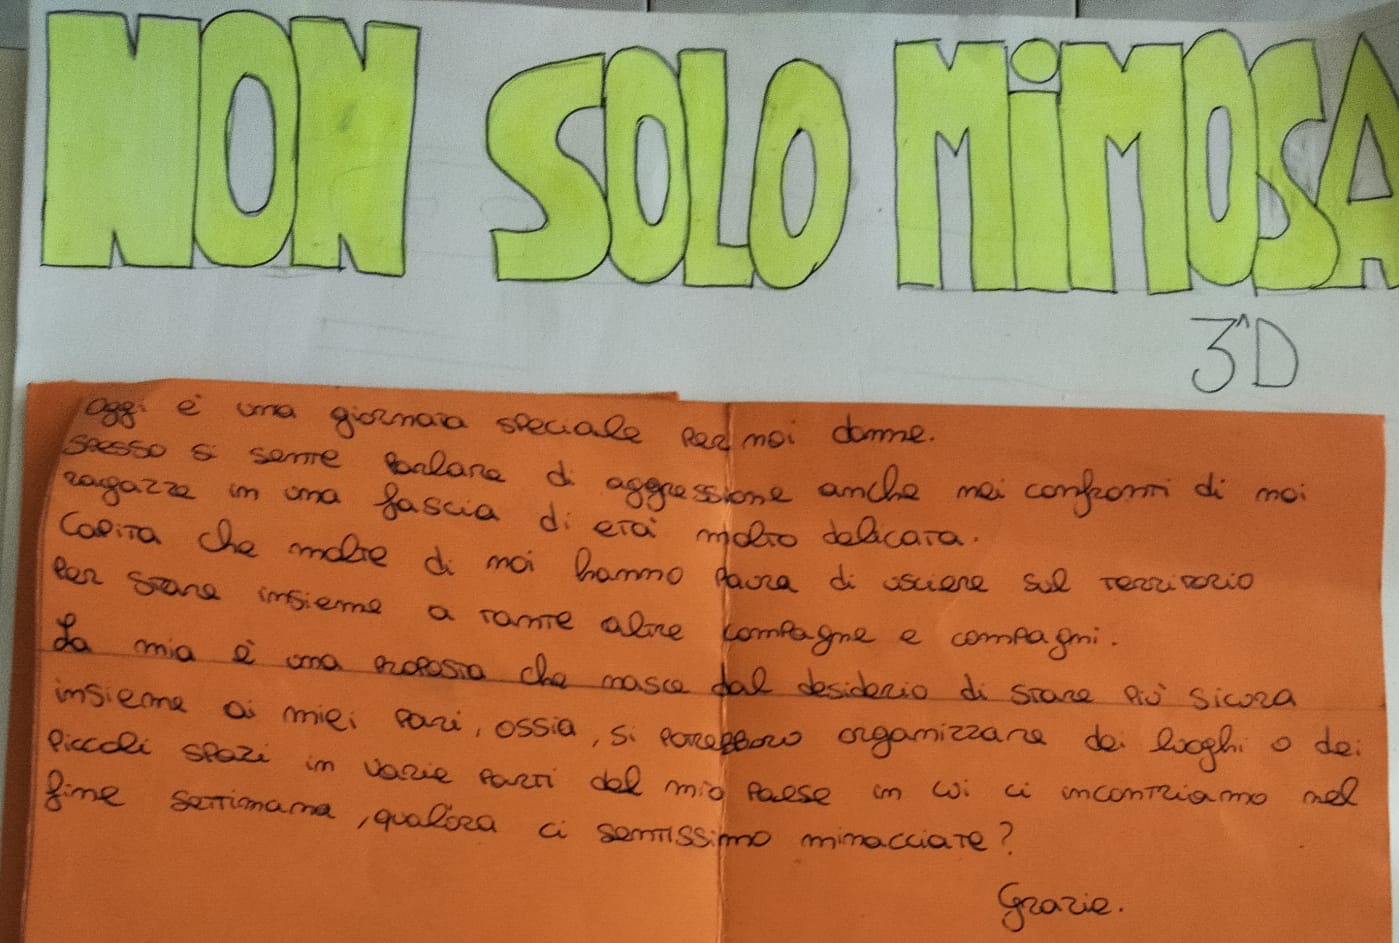 NON SOLO MiMOSA
3^D
Oggi è una giornata speciale per noi donne.
Spesso si sente parlare di aggressione anche nei confronti di noi
ragazze in una fascia di età molto delicata.
Capita che molte di noi hanno paura di uscire sul territorio
per stare insieme a tante altre compagne e compagni.
La mia è una proposta che nasce dal desiderio di stare più sicura
insieme ai miei pari, ossia, si potrebbero organizzare dei luoghi o dei
piccoli spazi in varie parti del mio paese in cui ci incontriamo nel
fine settimana, qualora ci sentissimo minacciate?
Grazie.